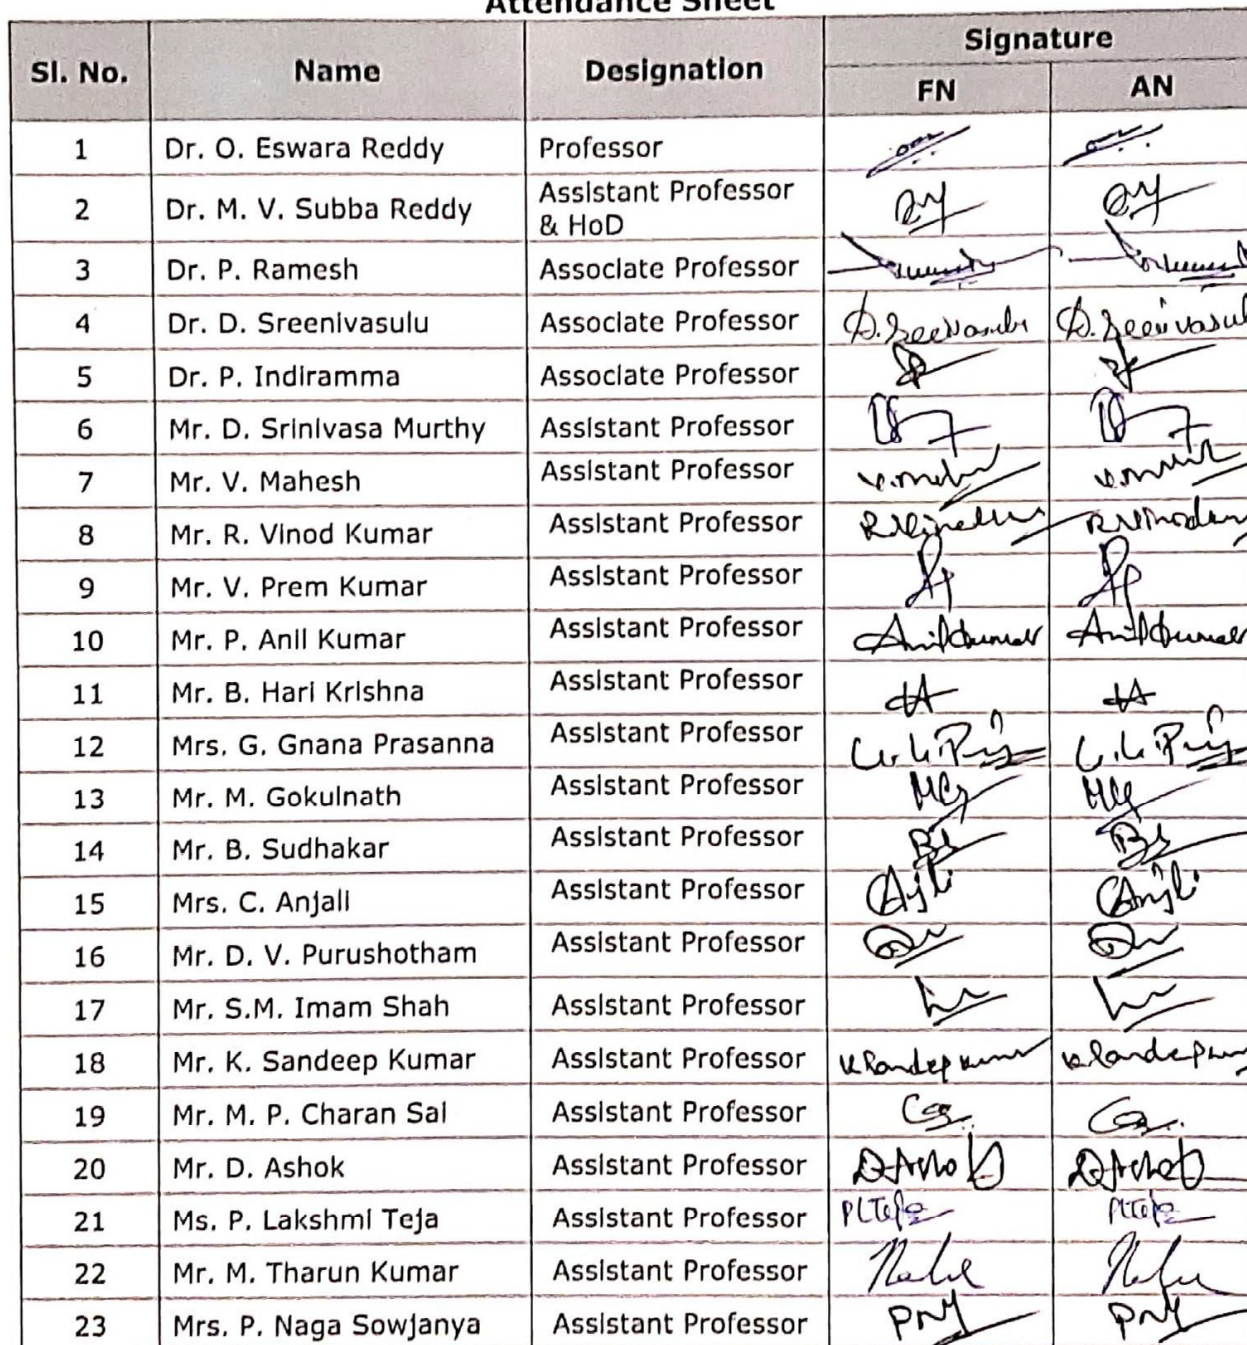 Attendance Sheet
Sl. No. Name Designation Signature
FN AN
1 Dr. O. Eswara Reddy Professor
2 Dr. M. V. Subba Reddy Assistant Professor
& HoD
3 Dr. P. Ramesh Associate Professor
4 Dr. D. Sreenivasulu Associate Professor
5 Dr. P. Indiramma Associate Professor
6 Mr. D. Srinivasa Murthy Assistant Professor
7 Mr. V. Mahesh Assistant Professor
8 Mr. R. Vinod Kumar Assistant Professor
9 Mr. V. Prem Kumar Assistant Professor
10 Mr. P. Anil Kumar Assistant Professor Anilkumar Anilkumar
11 Mr. B. Hari Krishna Assistant Professor
12 Mrs. G. Gnana Prasanna Assistant Professor
13 Mr. M. Gokulnath Assistant Professor
14 Mr. B. Sudhakar Assistant Professor
15 Mrs. C. Anjali Assistant Professor
16 Mr. D. V. Purushotham Assistant Professor
17 Mr. S.M. Imam Shah Assistant Professor
18 Mr. K. Sandeep Kumar Assistant Professor
19 Mr. M. P. Charan Sai Assistant Professor
20 Mr. D. Ashok Assistant Professor D. Ashok D. Ashok
21 Ms. P. Lakshmi Teja Assistant Professor PLTeja PLTeja
22 Mr. M. Tharun Kumar Assistant Professor
23 Mrs. P. Naga Sowjanya Assistant Professor